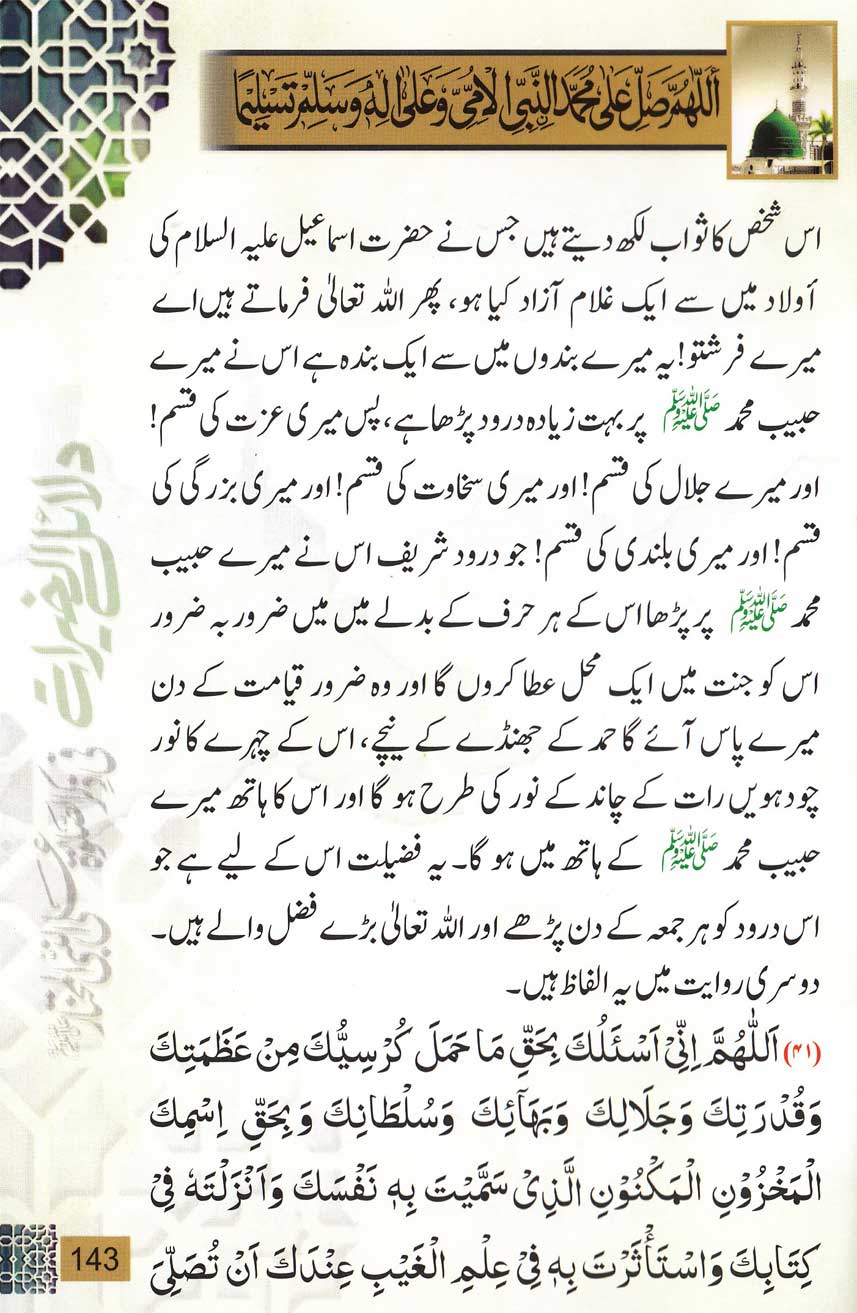 اَللّٰهُمَّ صَلِّ عَلٰى مُحَمَّدِ النَّبِيِّ الْاُمِّيِّ وَعَلٰى اٰلِهٖ وَسَلِّمْ تَسْلِيْمًا
اس شخص کا ثواب لکھ دیتے ہیں جس نے حضرت اسماعیل علیہ السلام کی
أولاد میں سے ایک غلام آزاد کیا ہو، پھر اللہ تعالیٰ فرماتے ہیں اے
میرے فرشتو! یہ میرے بندوں میں سے ایک بندہ ہے اس نے میرے
حبیب محمد ﷺ پر بہت زیادہ درود پڑھا ہے، پس میری عزت کی قسم!
اور میرے جلال کی قسم! اور میری سخاوت کی قسم! اور میری بزرگی کی
قسم! اور میری بلندی کی قسم! جو درود شریف اس نے میرے حبیب
محمد ﷺ پر پڑھا اس کے ہر حرف کے بدلے میں میں ضرور بہ ضرور
اس کو جنت میں ایک محل عطا کروں گا اور وہ ضرور قیامت کے دن
میرے پاس آئے گا حمد کے جھنڈے کے نیچے، اس کے چہرے کا نور
چودہویں رات کے چاند کے نور کی طرح ہو گا اور اس کا ہاتھ میرے
حبیب محمد ﷺ کے ہاتھ میں ہو گا۔ یہ فضیلت اس کے لیے ہے جو
اس درود کو ہر جمعہ کے دن پڑھے اور اللہ تعالیٰ بڑے فضل والے ہیں۔
دوسری روایت میں یہ الفاظ ہیں۔
(۴۱) اَللّٰهُمَّ اِنِّيْ اَسْئَلُكَ بِحَقِّ مَا حَمَلَ كُرْسِيُّكَ مِنْ عَظَمَتِكَ
وَقُدْرَتِكَ وَجَلَالِكَ وَبَهَآئِكَ وَسُلْطَانِكَ وَبِحَقِّ اِسْمِكَ
الْمَخْزُوْنِ الْمَكْنُوْنِ الَّذِيْ سَمَّيْتَ بِهٖ نَفْسَكَ وَاَنْزَلْتَهٗ فِيْ
كِتَابِكَ وَاسْتَأْثَرْتَ بِهٖ فِيْ عِلْمِ الْغَيْبِ عِنْدَكَ اَنْ تُصَلِّيَ
دلائل الخیرات
فی ذکر الصلوۃ علی النبی المختار ﷺ
143